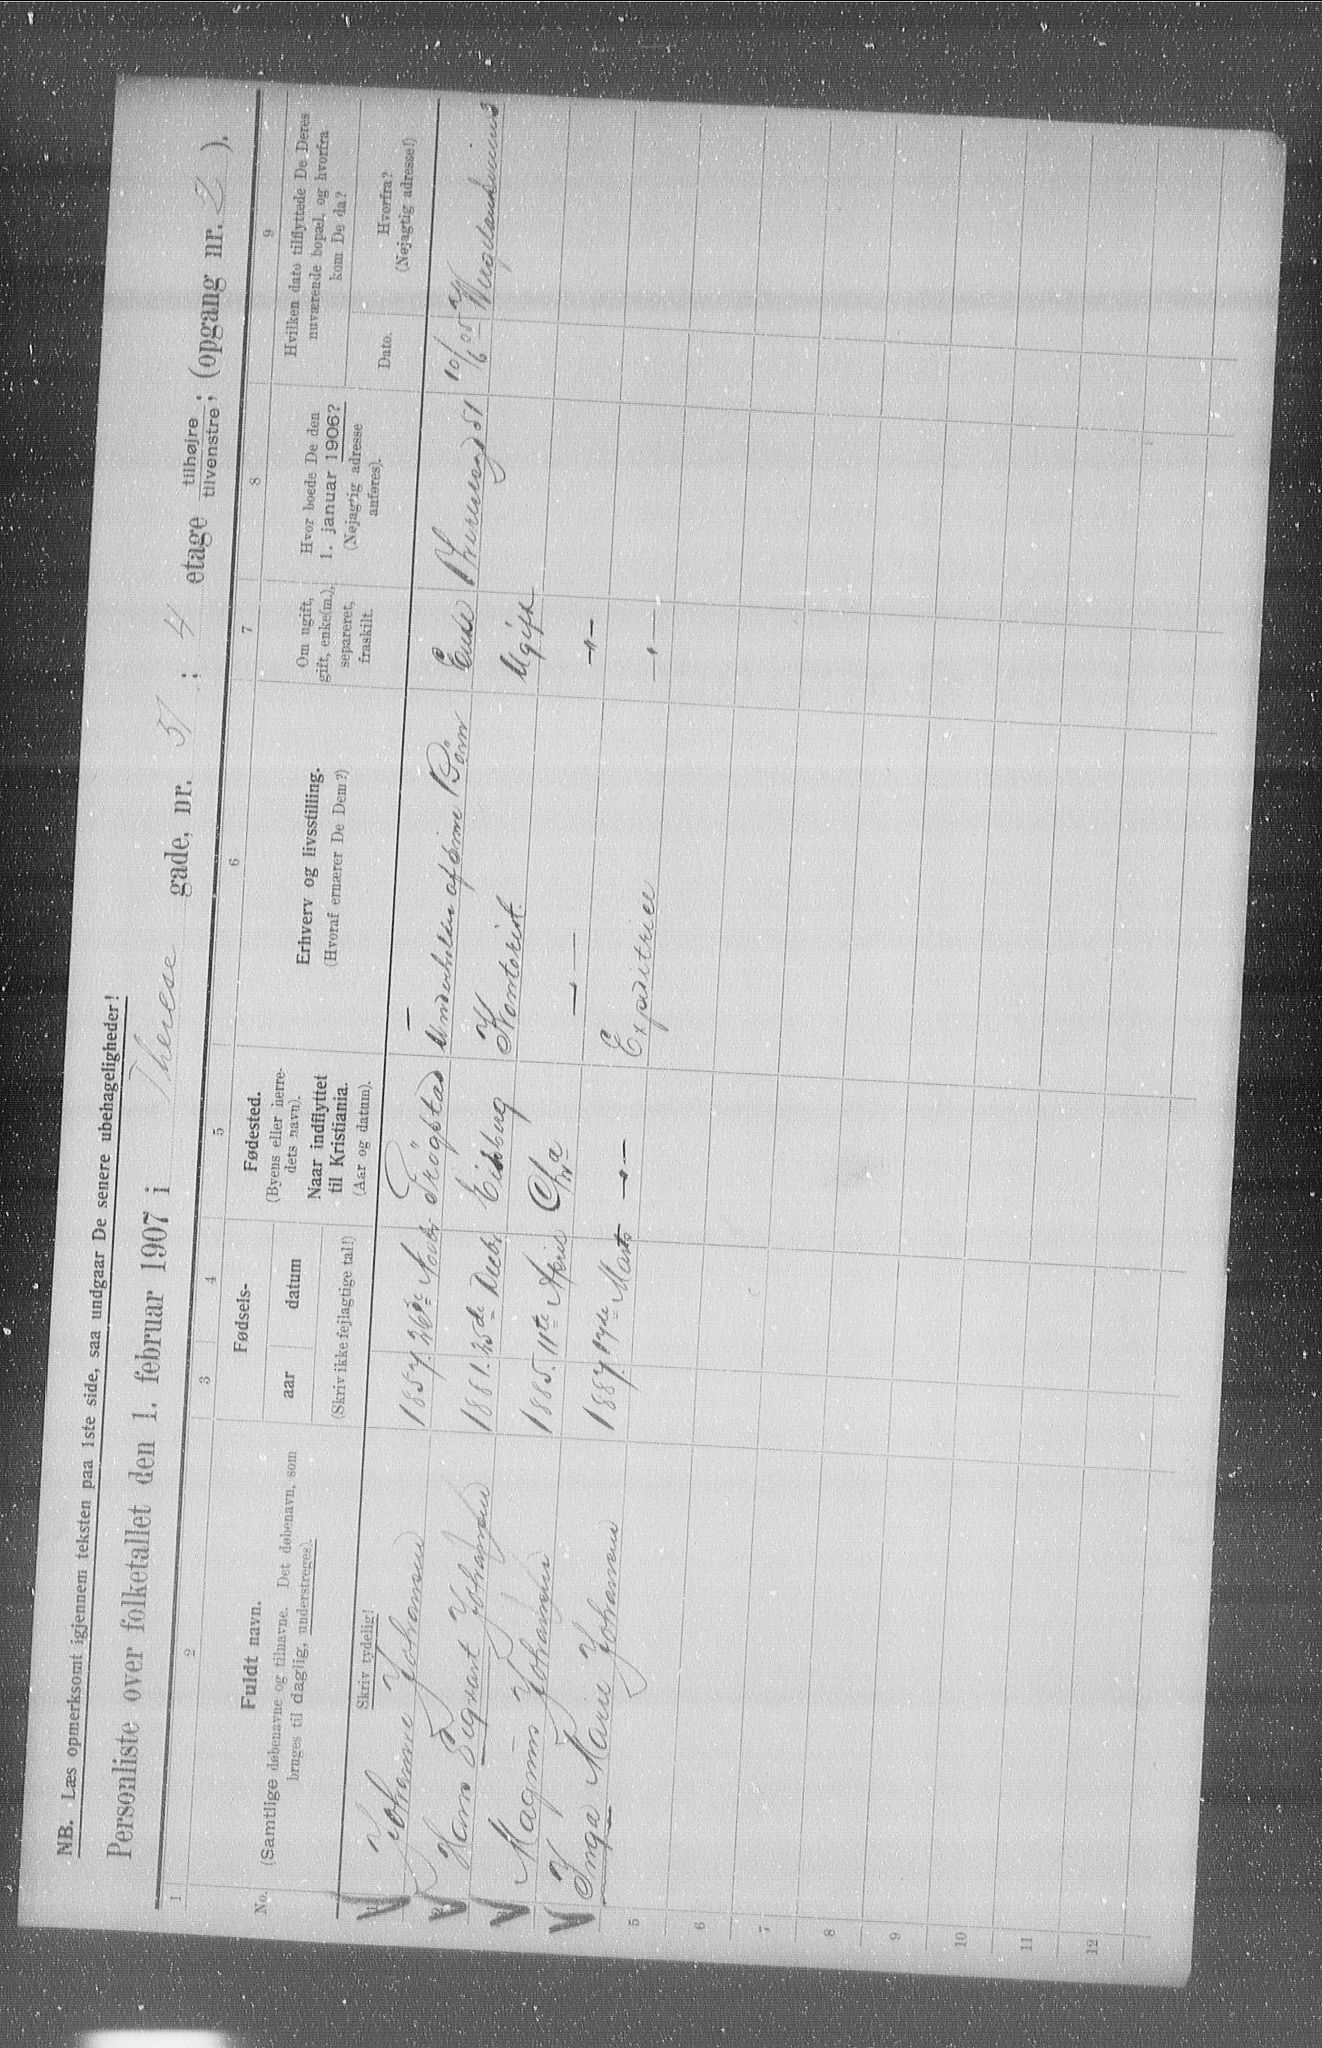 NB. Læs opmerksomt igjennem teksten paa 1ste side, saa undgaar De senere ubehageligheder!
Personliste over folketallet den 1. februar 1907 i Therese gade, nr. 51; 4 etage tilhøjre; tilvenstre; (opgang nr. 2).
1 2 3 4 5 6 7 8 9
No.
Fuldt navn.
(Samtlige døbenavne og tilnavne. Det døbenavn, som
bruges til daglig, understreges).
Skriv tydelig!
Fødsels-
aar datum
(Skriv ikke fejlagtige tal!)
Fødested.
(Byens eller herre-
dets navn).
Naar indflyttet
til Kristiania.
(Aar og datum).
Erhverv og livsstilling.
(Hvoraf ernærer De Dem?)
Om ugift,
gift, enke(m.),
separeret,
fraskilt.
Hvor boede De den
1. januar 1906?
(Nøjagtig adresse
anføres).
Hvilken dato tilflyttede De Deres
nuværende bopæl, og hvorfra
kom De da?
Dato.
Hvorfra?
(Nøjagtig adresse!)
1 Johanne Johansen 1857. 26de Novbr Trøgstad — Underholdes af sine Börn Enke Theresegd 51 10/6 05
2 Hans Sigvart Johansen 1881. 25de Decbr Eidsberg Kontorist. Ugift
3 Magnus Johansen 1885. 11te April Chra —"— —"—
Inga Marie Johansen 1887. 17de Marts —"— Expeditrice —"—
5
6
7
8
9
10
11
12